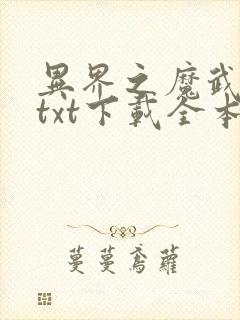 異界之魔武
txt下載全本
蔓蔓鳶蘿